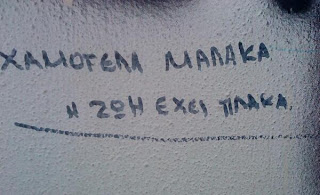 ΧΑΜΟΓΕΛΑ ΜΑΛΑΚΑ
Η ΖΩΗ ΕΧΕΙ ΠΛΑΚΑ.